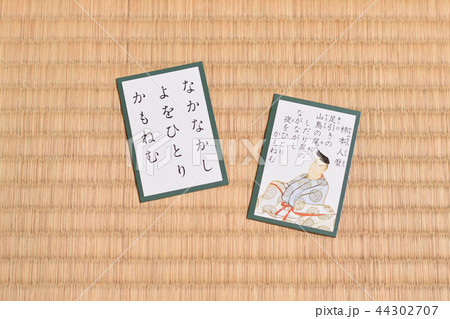 なかなかし
よをひとり
かもねむ
柿本人麿
足引きの
山鳥の尾の
しだり尾の
ながながし
夜をひとり
かもねむ
pixta.jp - 44302707